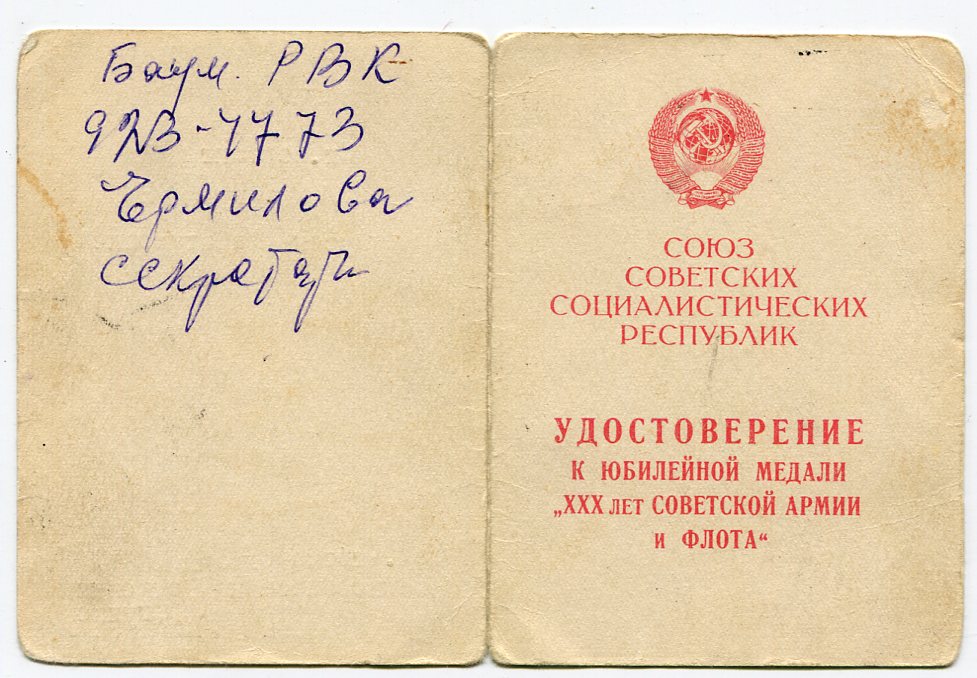 Баум. РВК
923-1773
Ермилова
секретарь
СОЮЗ
СОВЕТСКИХ
СОЦИАЛИСТИЧЕСКИХ
РЕСПУБЛИК
УДОСТОВЕРЕНИЕ
К ЮБИЛЕЙНОЙ МЕДАЛИ
„XXX ЛЕТ СОВЕТСКОЙ АРМИИ
И ФЛОТА“